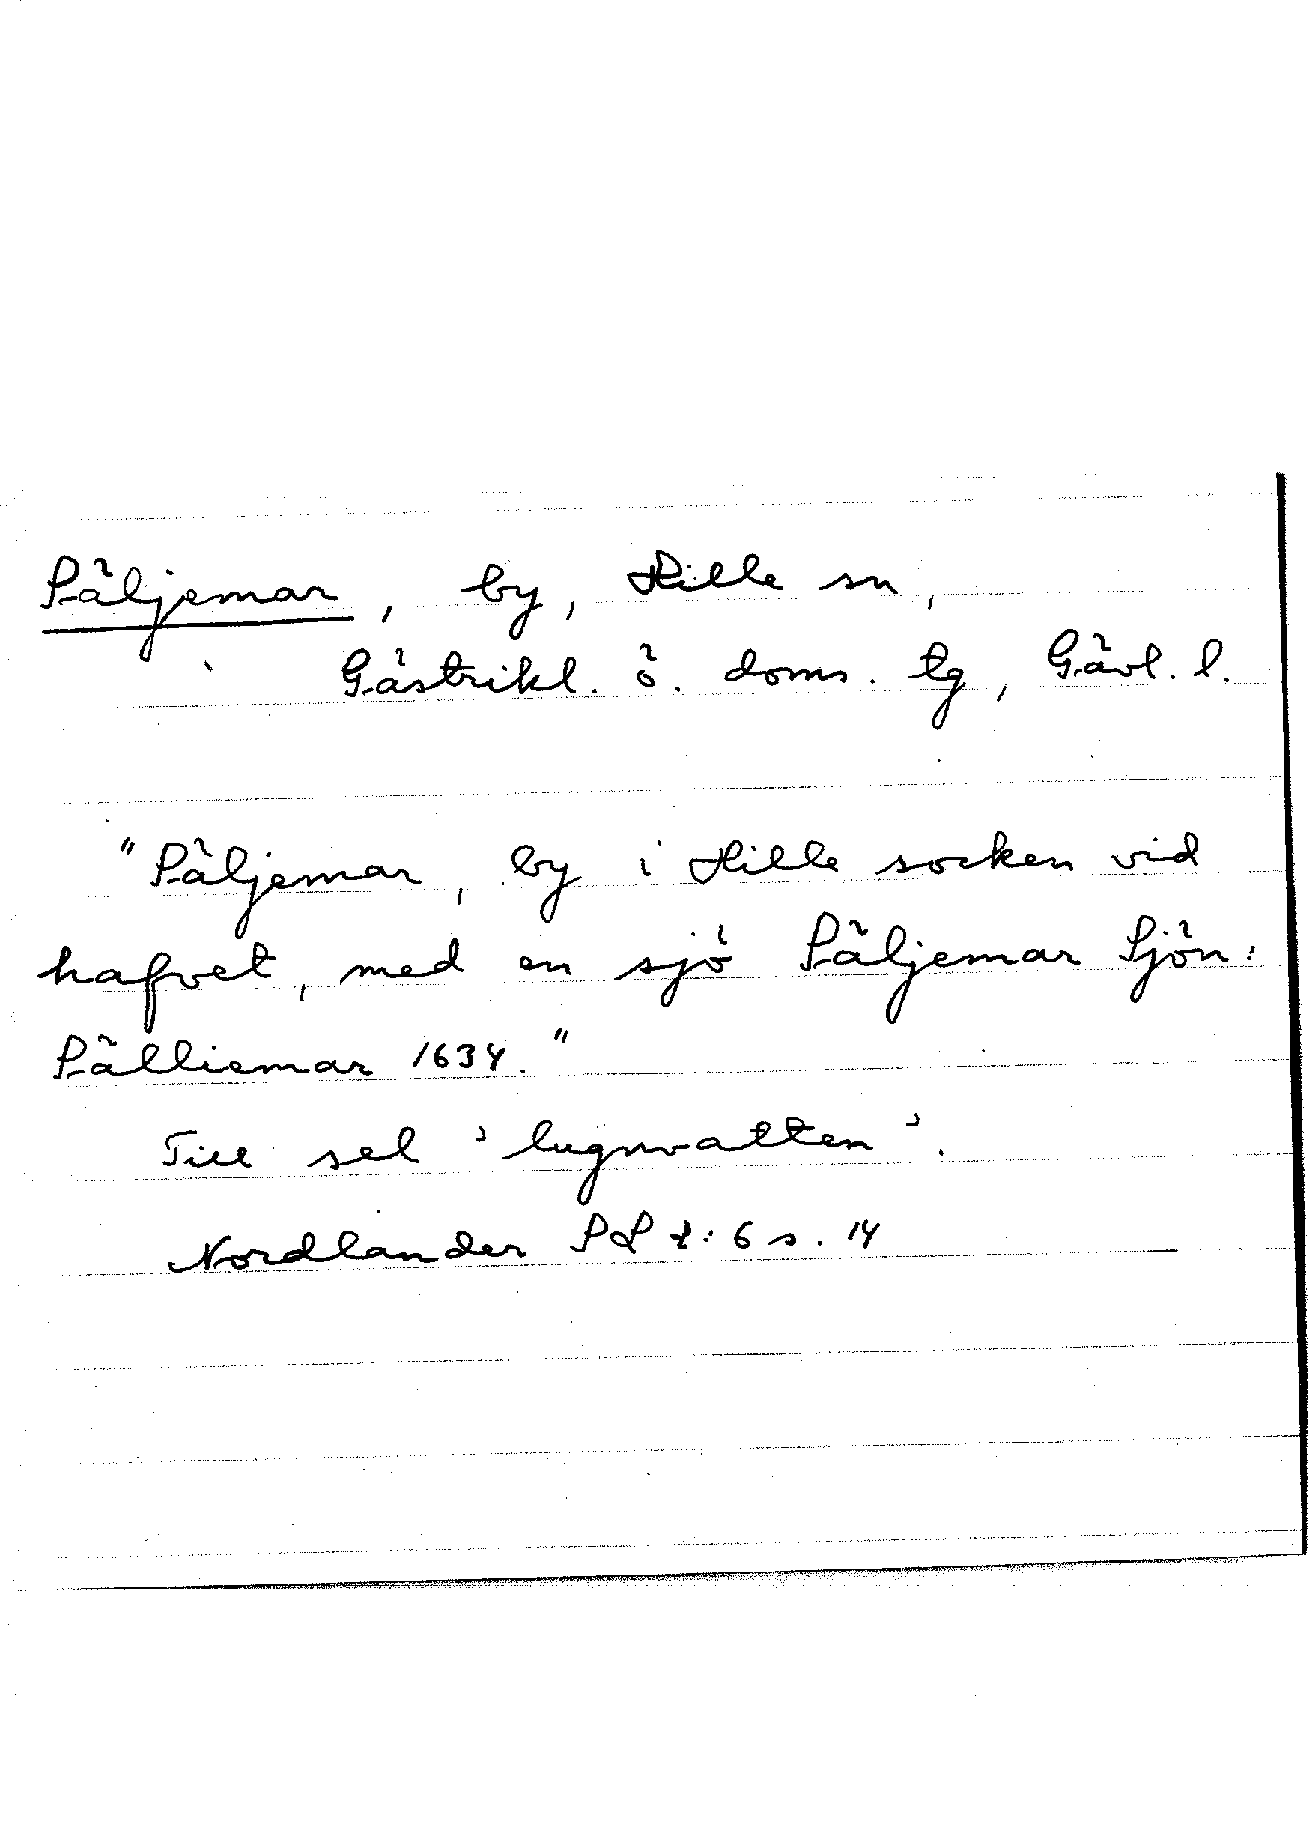 Säljemar, by, Hille sn,
Gästrikl. ö. doms. tg, Gävl. l.
"Säljemar, by i Hille socken vid
hafvet, med en sjö Säljemar Sjön:
Sälliemar 1634."
Till sel 'lugnvatten'.
Nordlander :6 s. 14